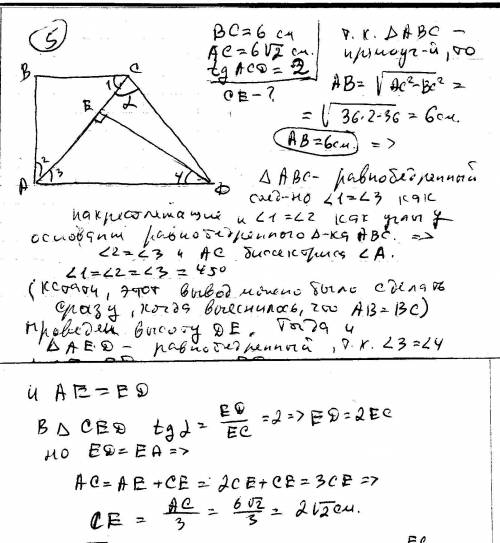 5
BC=6 см
AC=6√2 см.
tg ACD = 2
CE - ?
т.к. ΔABC -
прямоуг-й, то
AB = √AC²-BC² =
= √36·2-36 = 6см.
AB=6см. =>
B C 1 α E A 2 3 4 D
ΔABC - равнобедренный
след-но ∠1=∠3 как
накрестлежащие и ∠1=∠2 как углы у
основания равнобедренного Δ-ка ABC. =>
∠2=∠3 и AC биссектриса ∠A.
∠1=∠2=∠3=45°
(кстати, этот вывод можно было сделать
сразу, когда выяснилось, что AB=BC)
Проведем высоту DE. Тогда и
ΔAED - равнобедренный, т.к. ∠3=∠4
и AE=ED
В Δ CED tg α = ED/EC = 2 => ED=2EC
но ED=EA =>
AC = AE + CE = 2CE + CE = 3CE =>
CE = AC/3 = 6√2/3 = 2√2 см.